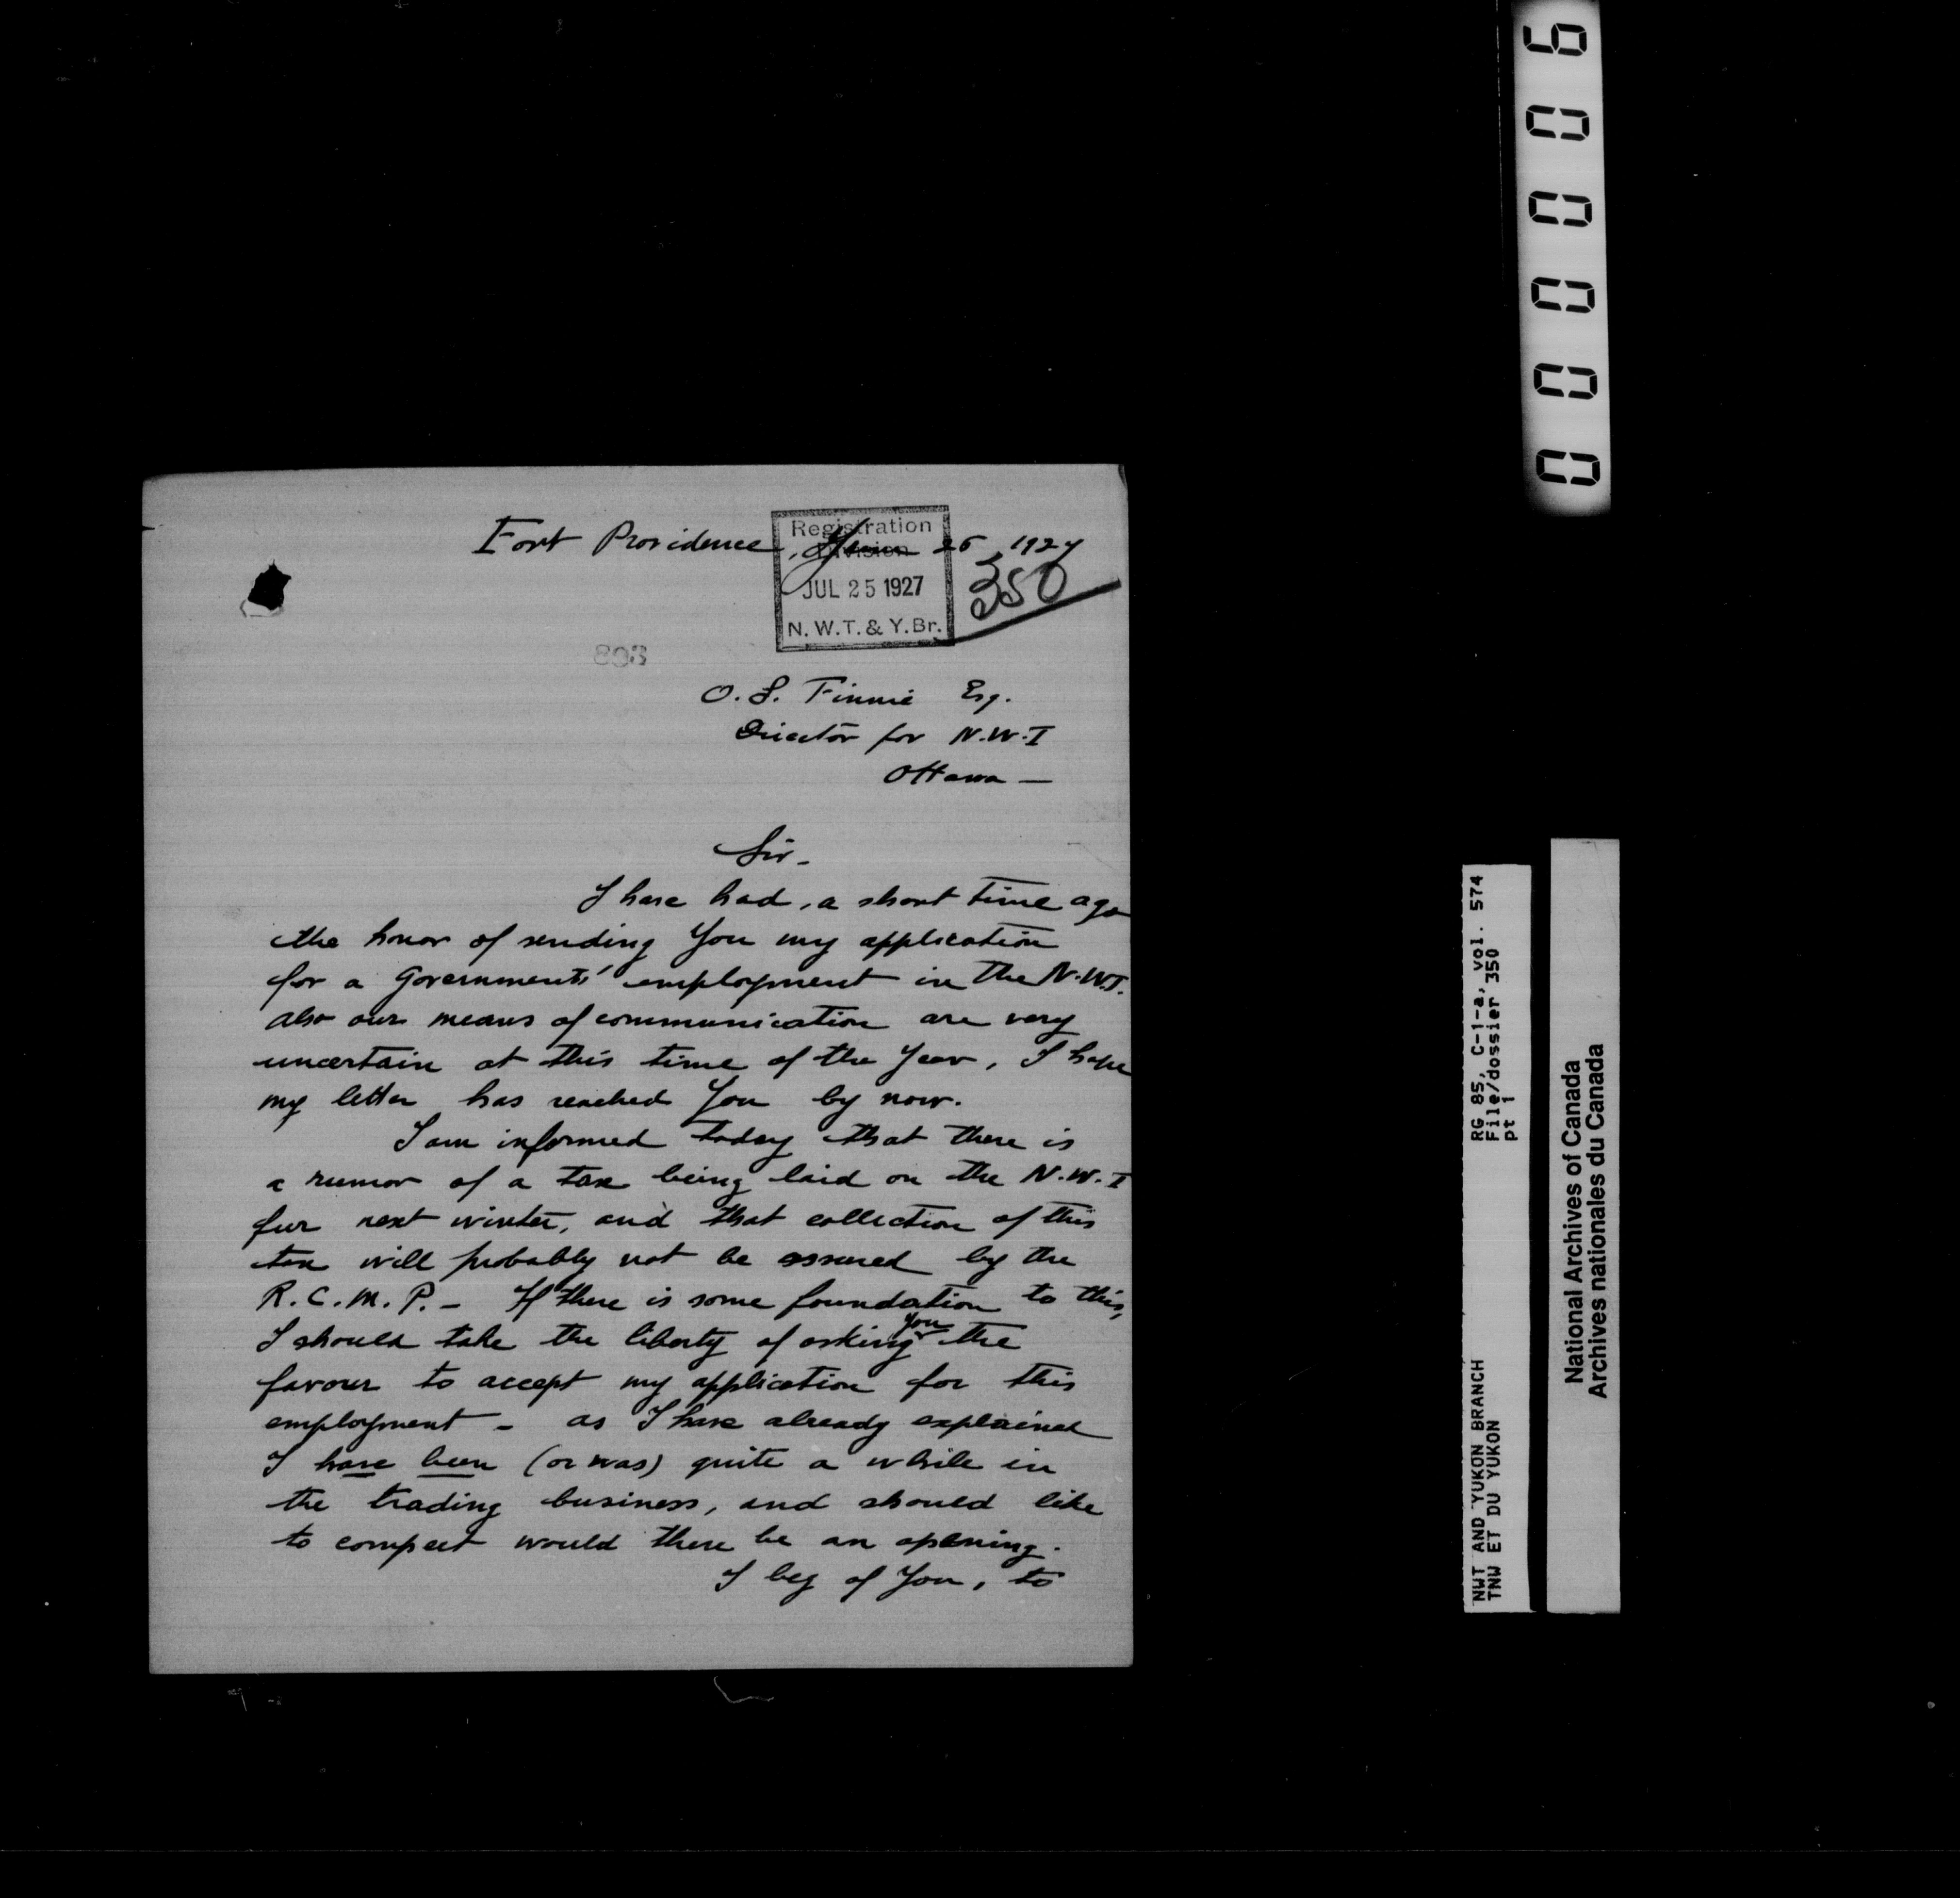 Fort Providence, June 26, 1927
Registration
Division
JUL 25 1927
N. W. T. & Y. Br.
350
893
O. S. Finnie Esq.
Director for N.W.T
Ottawa —
Sir -
I have had, a short time ago
the honor of sending You my application
for a Governments' employment in the N.W.T.
also our means of communication are very
uncertain at this time of the Year, I hope
my letter has reached You by now.
I am informed today that there is
a rumor of a tax being laid on the N.W.T
fur next winter, and that collection of this
tax will probably not be assured by the
R.C.M.P. - If there is some foundation to this,
I should take the liberty of asking you the
favour to accept my application for this
employment - as I have already explained
I have been (or was) quite a while in
the trading business, and should like
to compeet would there be an opening.
I beg of You, to
000006
RG 85, C-1-a, vol. 574
File/dossier 350
pt 1
NWT AND YUKON BRANCH
TNW ET DU YUKON
National Archives of Canada
Archives nationales du Canada